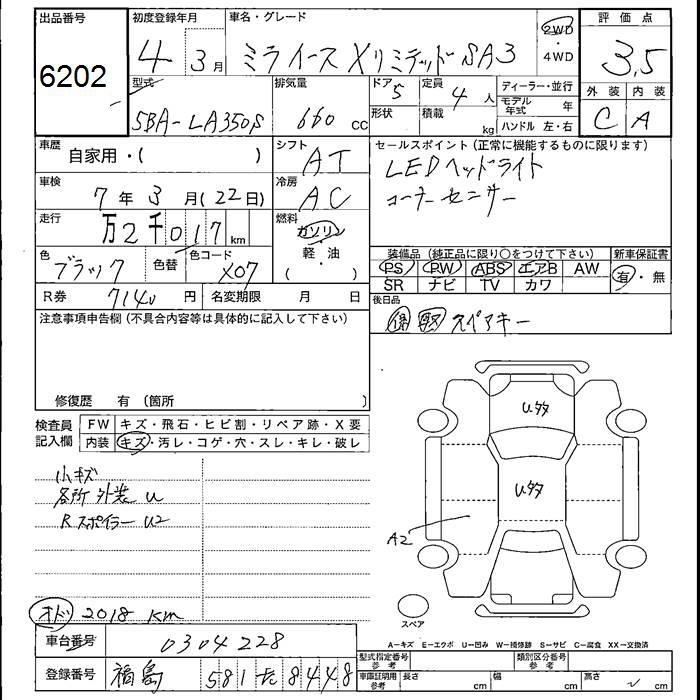 出品番号
6202
初度登録年月
4年3月
車名・グレード
ミライース XリミテッドSA3
2WD
・
4WD
評価点
3.5
外装 内装
C A
型式
5BA-LA350S
排気量
660 cc
ドア 5
形状
定員 4人
積載 kg
ディーラー・並行
モデル年式 年
ハンドル 左・右
車歴
自家用・( )
シフト AT
セールスポイント(正常に機能するものに限ります)
LEDヘッドライト
コーナーセンサー
車検
7年3月(22日)
冷房 AC
走行
万2千017km
燃料
ガソリン
軽・油
( )
色 ブラック
色替
色コード X07
装備品(純正品に限り○をつけて下さい)
新車保証書
PS PW ABS エアB AW
SR ナビ TV カワ
有・無
R券 7140円
名変期限 月 日
後日品
スペアキー
注意事項申告欄(不具合内容等は具体的に記入して下さい)
修復歴 有(箇所 )
検査員
記入欄
FW キズ・飛石・ヒビ割・リペア跡・X要
内装 キズ・汚レ・コゲ・穴・スレ・キレ・破レ
小キズ
各所外装 U
Rスポイラー U2
オド 2018 km
Uタタ
Uタタ
A2
スペア
A-キズ E-エクボ U-凹み W-補修跡 S-サビ C-腐食 XX-交換済
車台番号 0304228
登録番号 福島 581 た 8448
型式指定番号
参考
類別区分番号
参考
車庫証明用
参考
長さ cm
幅 cm
高さ cm